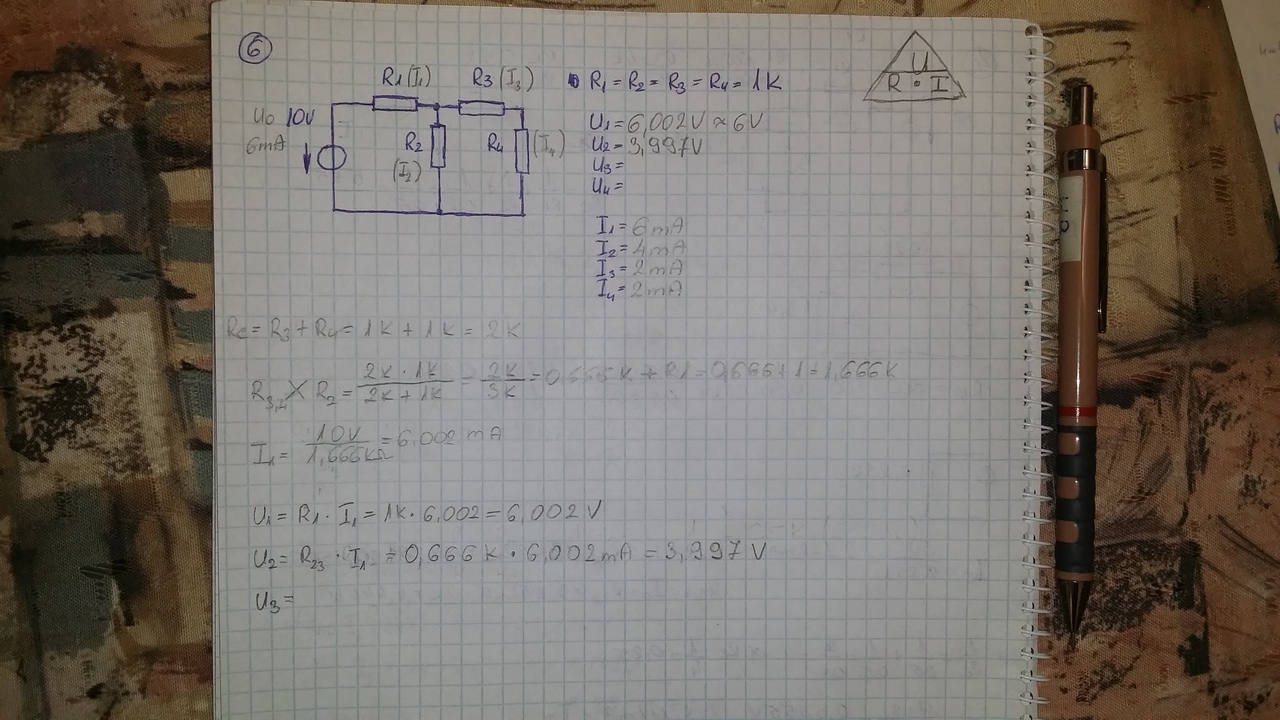 6
R1 (I1) R3 (I3)
U0 10V
6mA
R2
(I2)
R4 (I4)
R1 = R2 = R3 = R4 = 1K
U1 = 6,002V ≈ 6V
U2 = 3,997V
U3 =
U4 =
I1 = 6mA
I2 = 4mA
I3 = 2mA
I4 = 2mA
U
R • I
= R3 + R4 = 1K + 1K = 2K
R3,4 X R2 = 2K · 1K / 2K + 1K = 2K / 3K = 0,666K + R1 = 0,666 + 1 = 1,666K
I1 = 10V / 1,666KΩ = 6,002 mA
U1 = R1 · I1 = 1K · 6,002 = 6,002 V
U2 = R23 · I1 = 0,666 K · 6,002mA = 3,997 V
U3 =